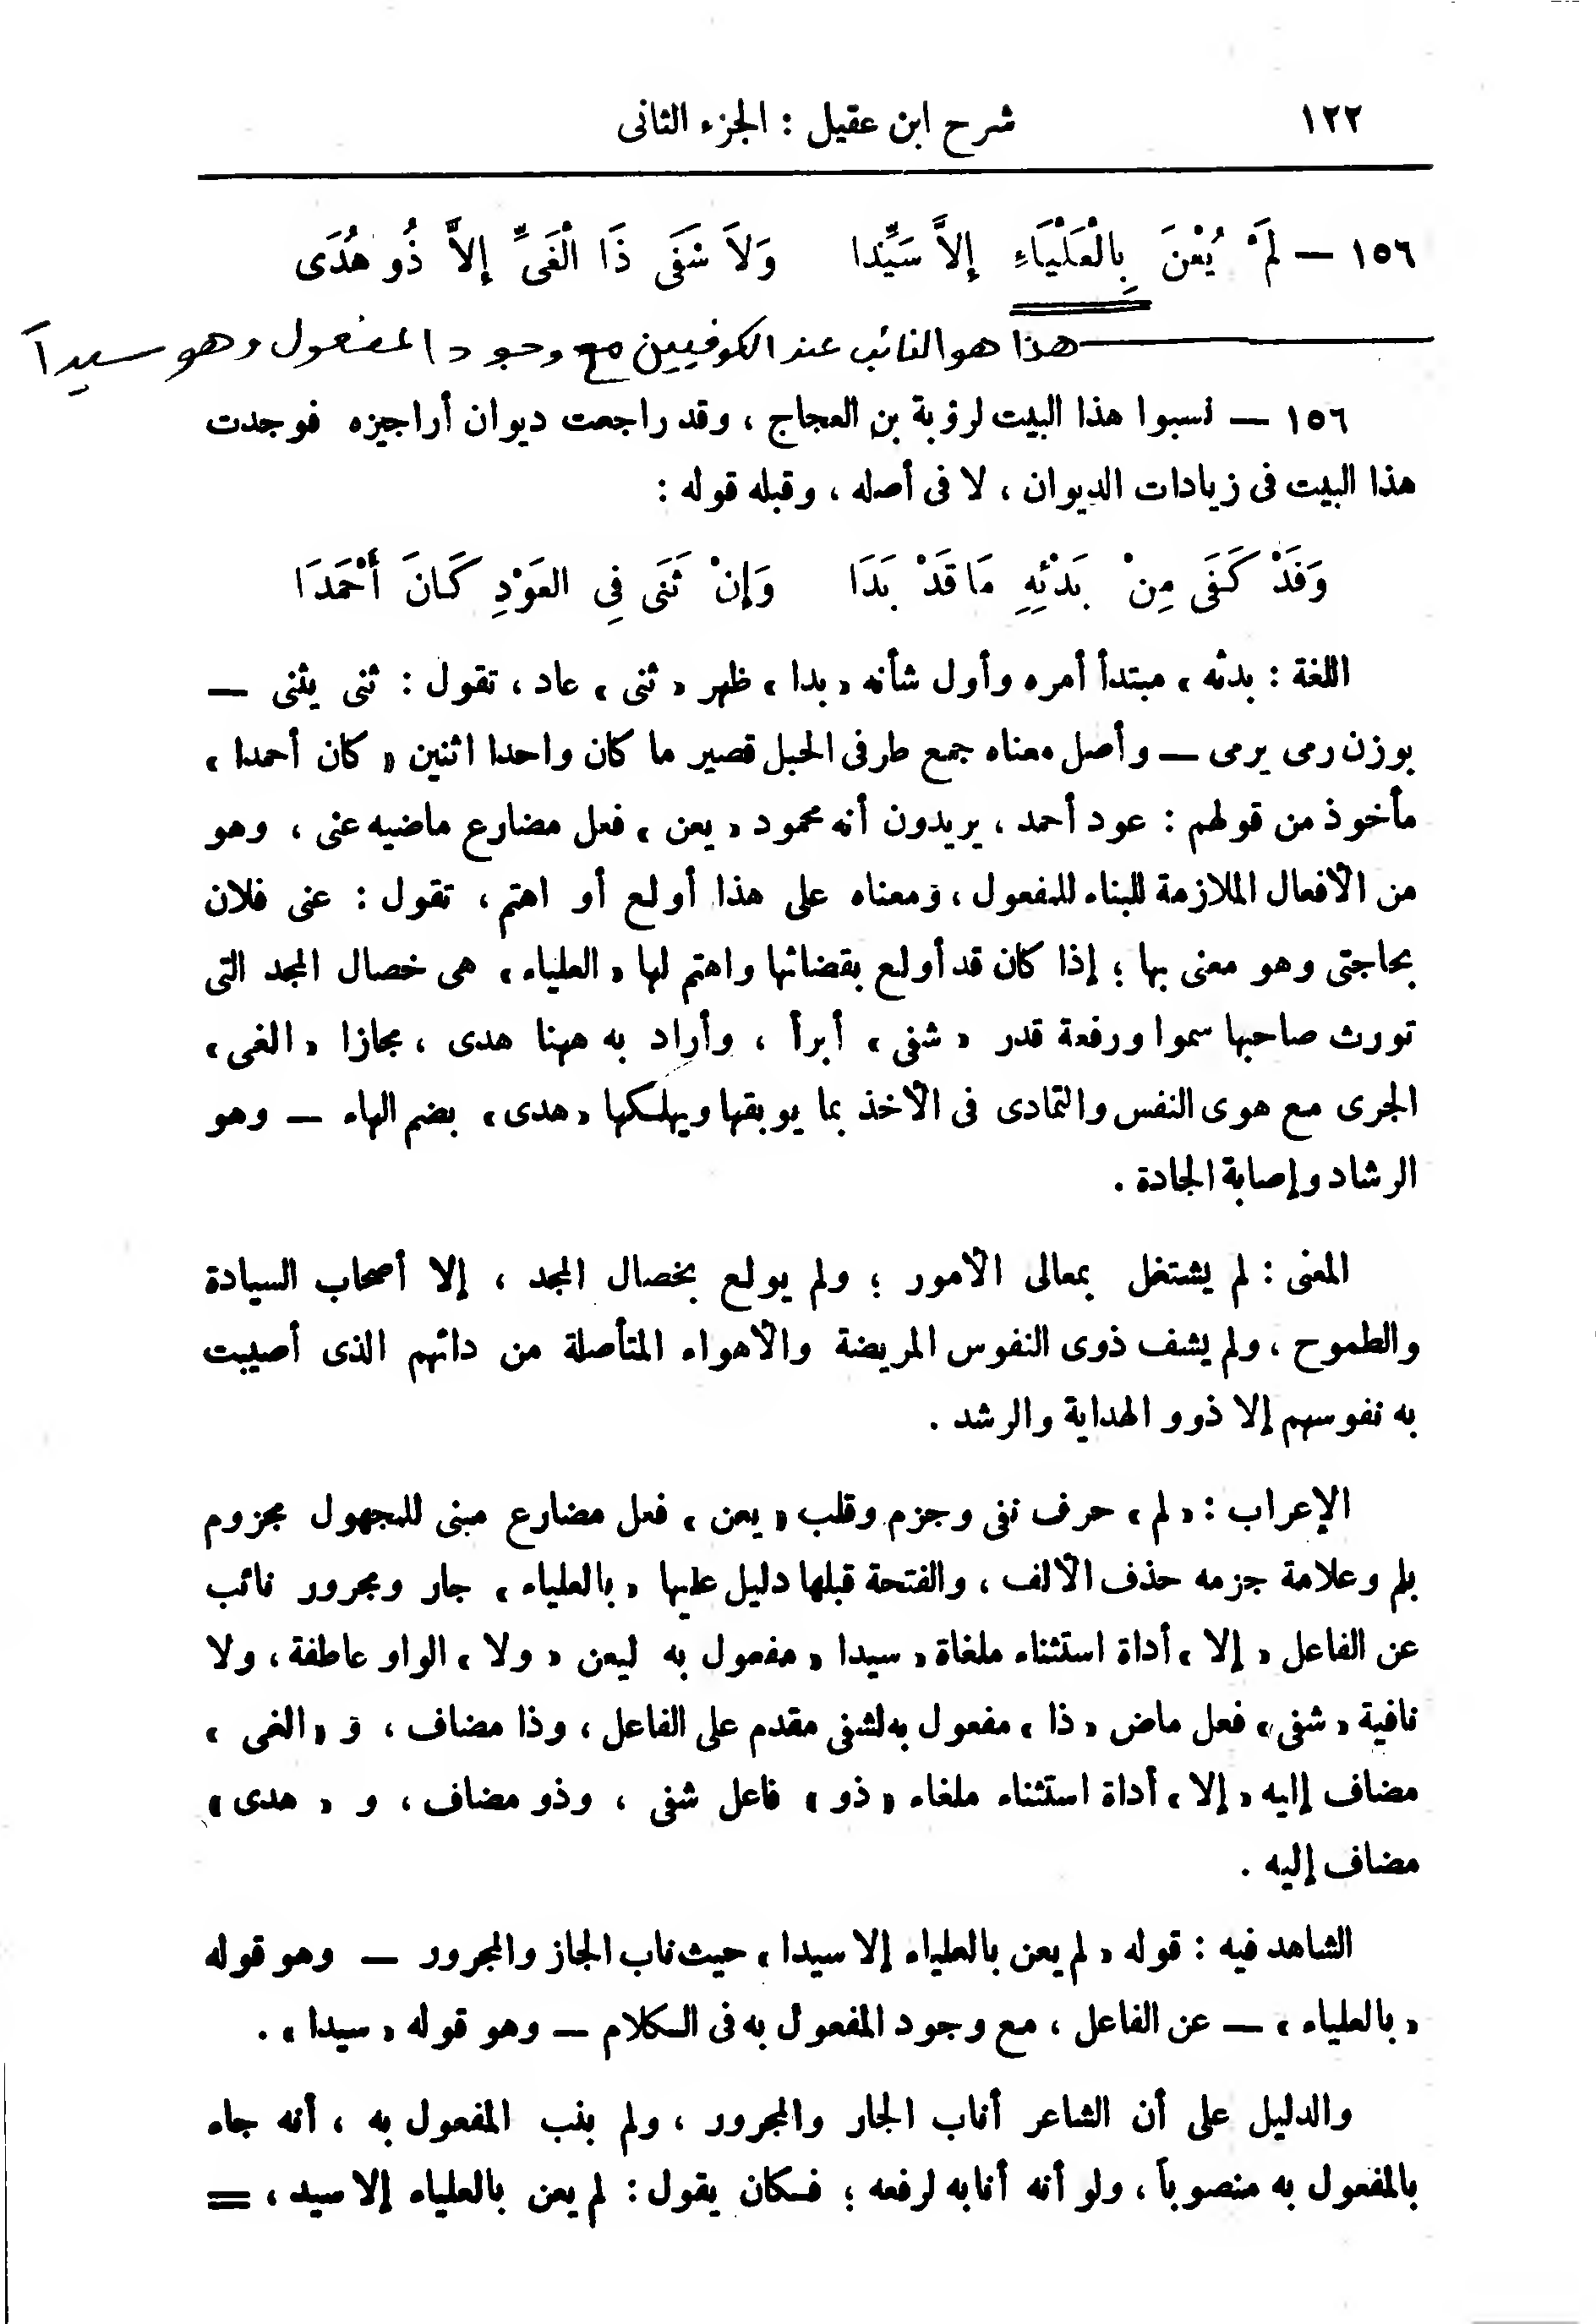 ١٢٢ شرح ابن عقيل : الجزء الثانى
١٥٦ — لَمْ يُعْنَ بِالْعَلْيَاءِ إِلاَّ سَيِّدا وَلاَ شَفَى ذَا الْغَىِّ إِلاَّ ذُو هُدَى
هذا هو النائب عند الكوفيين مع وجود المفعول وهو سيداً
١٥٦ — نسبوا هذا البيت لرؤبة بن العجاج ، وقد راجعت ديوان أراجيزه فوجدت
هذا البيت فى زيادات الديوان ، لا فى أصله ، وقبله قوله :
وَقَدْ كَفَى مِنْ بَدْئِهِ مَا قَدْ بَدَا وَإِنْ ثَنَى فِى العَوْدِ كَانَ أَحْمَدَا
اللغة : بدئه » مبتدأ أمره وأول شأنه « بدا » ظهر « ثنى » عاد ، تقول : ثنى يثنى —
بوزن رمى يرمى — وأصل معناه جمع طرفى الحبل قصير ما كان واحدا اثنين « كان أحمدا »
مأخوذ من قولهم : عود أحمد ، يريدون أنه محمود « يعن » فعل مضارع ماضيه عنى ، وهو
من الأفعال الملازمة للبناء للمفعول ، ومعناه على هذا أولع أو اهتم ، تقول : عنى فلان
بحاجتى وهو معنى بها ؛ إذا كان قد أولع بقضائها واهتم لها « العلياء » هى خصال المجد التى
تورث صاحبها سموا ورفعة قدر « شفى » أبرأ ، وأراد به ههنا هدى ، مجازا « الغى »
الجرى مع هوى النفس والتمادى فى الأخذ بما يوبقها ويهلكها « هدى » بضم الهاء — وهو
الرشاد وإصابة الجادة .
المعنى : لم يشتغل بمعالى الأمور ؛ ولم يولع بخصال المجد ، إلا أصحاب السيادة
والطموح ، ولم يشف ذوى النفوس المريضة والأهواء المتأصلة من دائهم الذى أصيبت
به نفوسهم إلا ذوو الهداية والرشد .
الإعراب : « لم » حرف نفى وجزم وقلب « يعن » فعل مضارع مبنى للمجهول مجزوم
بلم وعلامة جزمه حذف الألف ، والفتحة قبلها دليل عليها « بالعلياء » جار ومجرور نائب
عن الفاعل « إلا » أداة استثناء ملغاة « سيدا » مفعول به ليعن « ولا » الواو عاطفة ، ولا
نافية « شفى » فعل ماض « ذا » مفعول به لشفى مقدم على الفاعل ، وذا مضاف ، و « الغى »
مضاف إليه « إلا » أداة استثناء ملغاء « ذو » فاعل شفى ، وذو مضاف ، و « هدى »
مضاف إليه .
الشاهد فيه : قوله « لم يعن بالعلياء إلا سيدا » حيث ناب الجار والمجرور — وهو قوله
« بالعلياء » — عن الفاعل ، مع وجود المفعول به فى الكلام — وهو قوله « سيدا » .
والدليل على أن الشاعر أناب الجار والمجرور ، ولم ينب المفعول به ، أنه جاء
بالمفعول به منصوباً ، ولو أنه أنابه لرفعه ؛ فكان يقول : لم يعن بالعلياء إلا سيد ، =